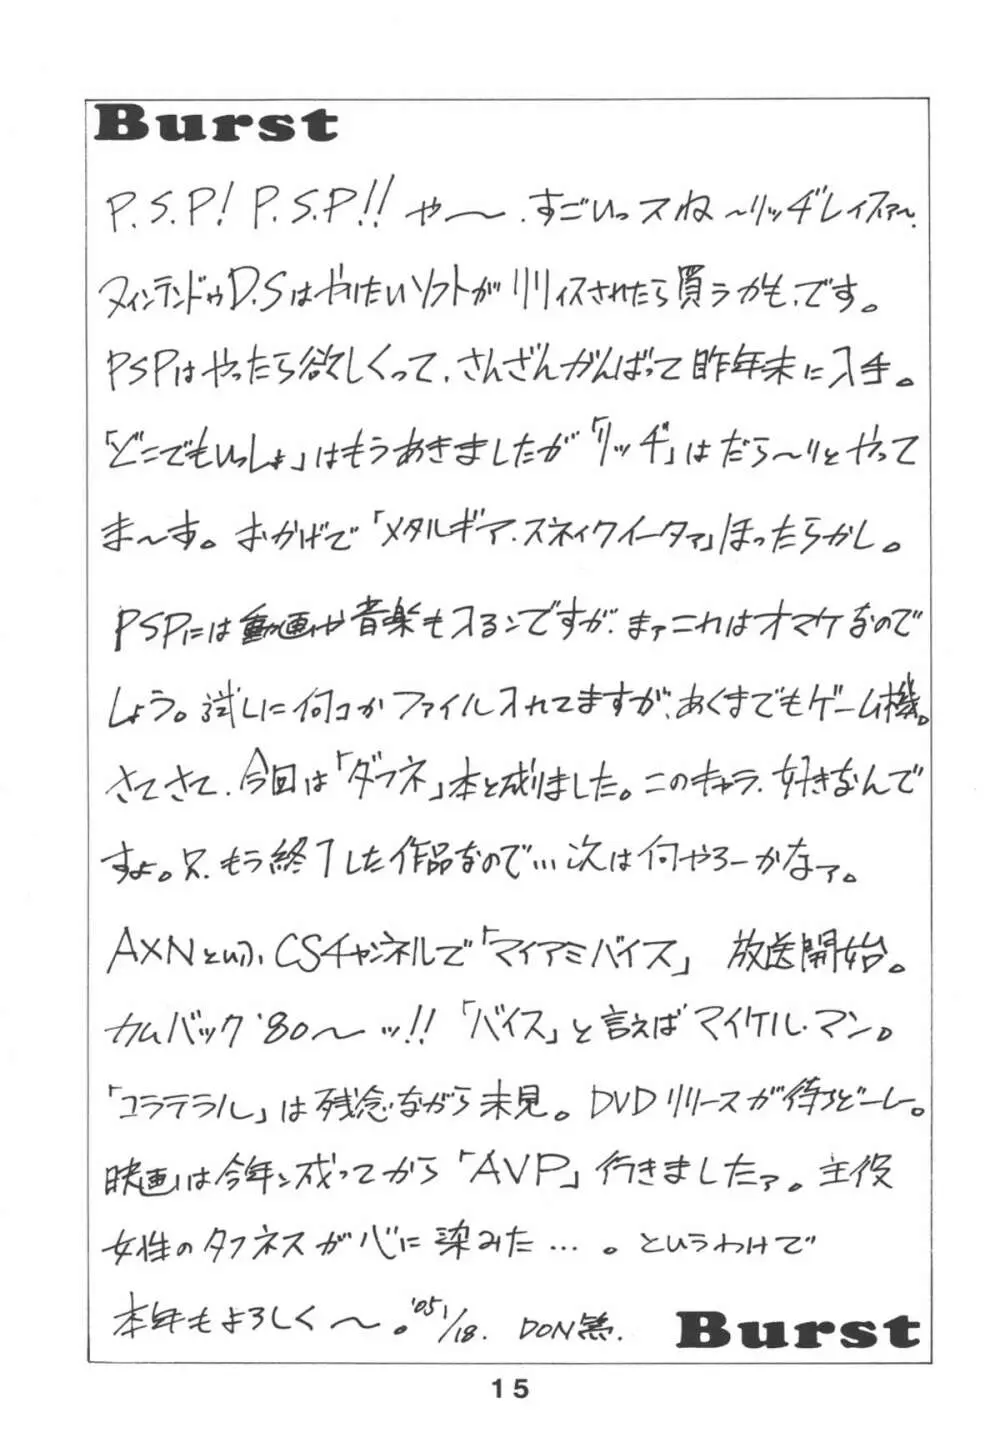 Burst
P.S.P! P.S.P!! や〜、すごいっスね〜リッヂレイスァ〜。
ヌィンテンドゥD.Sはやりたいソフトがリリィスされたら買うかも、です。
PSPはやったら欲しくって、さんざんがんばって昨年末に入手。
「どこでもいっしょ」はもうあきましたが「リッヂ」はだら〜りとやって
ま〜す。おかげで「メタルギア・スネイクイータァ」ほったらかし。
PSPには動画や音楽も入るンですが、まァこれはオマケなので
しょう。試しに何コかファイル入れてますが、あくまでもゲーム機。
さてさて、今回は「ダフネ」本と成りました。このキャラ、好きなんで
すよ。只、もう終了した作品なので…次は何やろーかなァ。
AXNという、CSチャンネルで「マイアミバイス」 放送開始。
カムバック'80〜ッ!! 「バイス」と言えばマイケル・マン。
「コラテラル」は残念ながら未見。DVDリリースが待ちどーし。
映画は今年ン成ってから「AVP」行きましたァ。主役
女性のタフネスが心に染みた…。というわけで
本年もよろしく〜。'05 1/18. DON
Burst
15